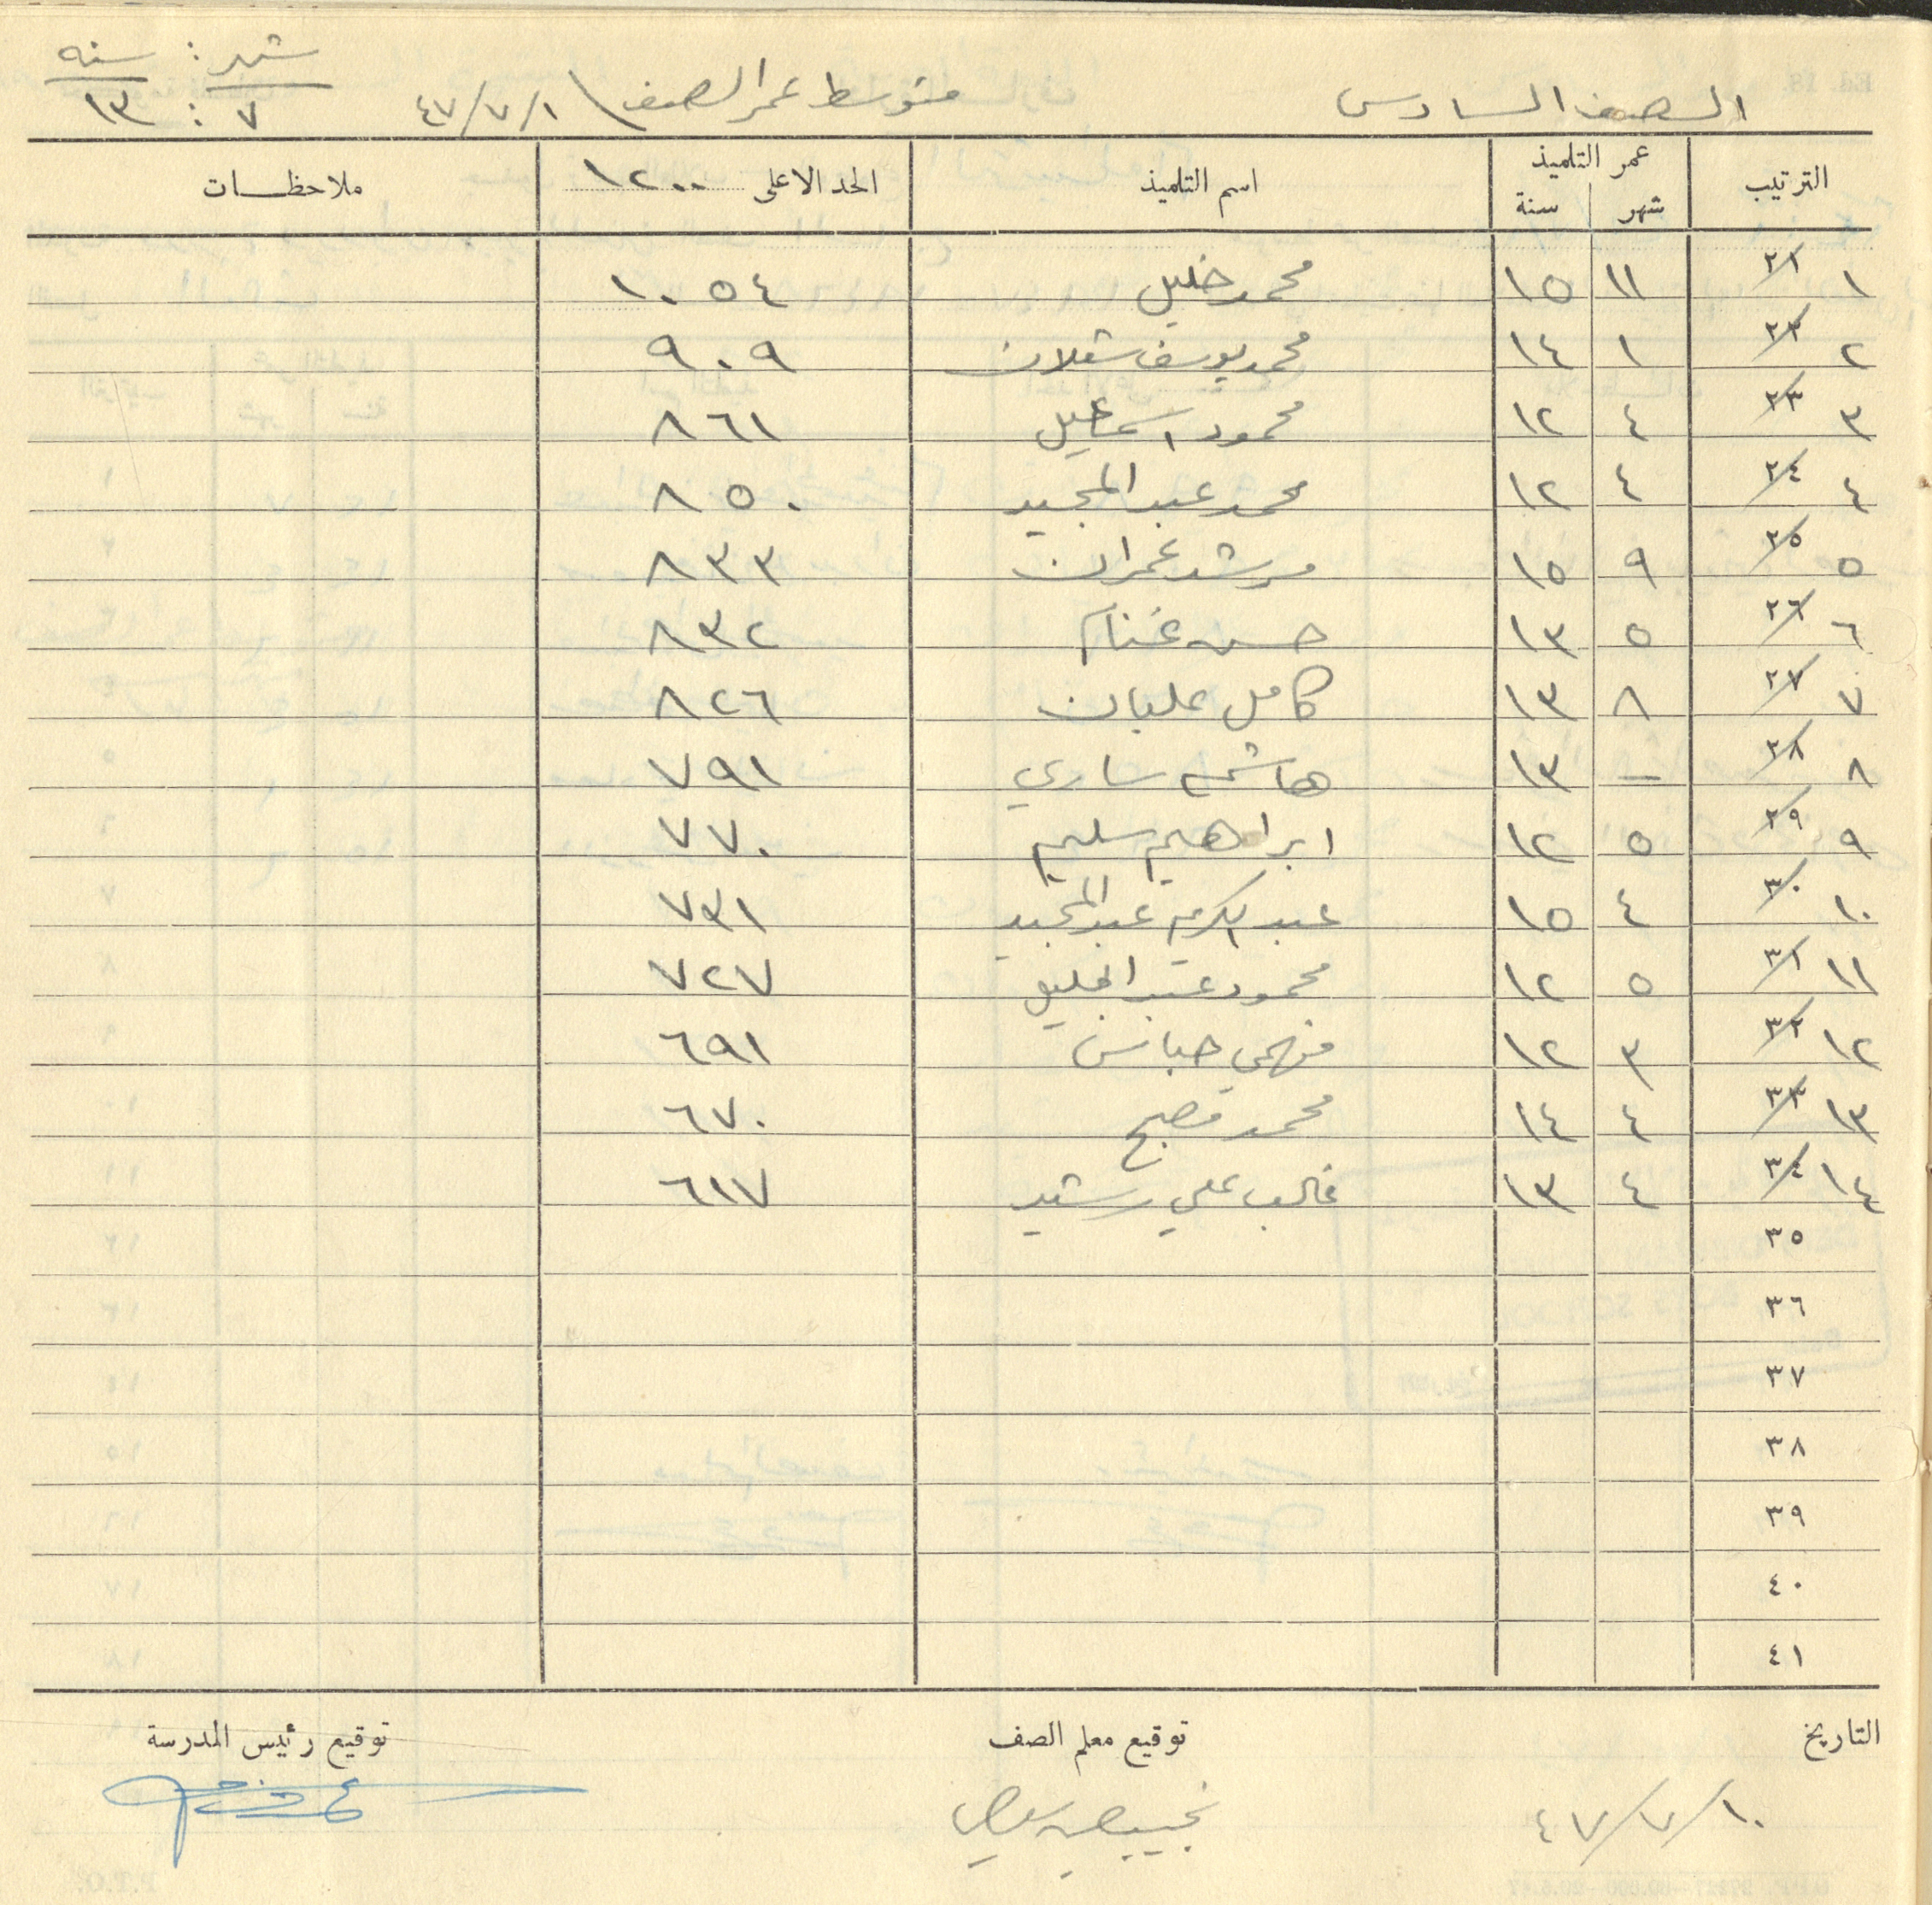 الصف السادس متوسط عمر الصف ١/٧/٤٧ شهر : سنه
٧ : ١٣
الترتيب عمر التلميذ اسم التلميذ الحد الاعلى ١٢٠٠ ملاحظات
شهر سنة
١ ٢١ ١١ ١٥ محمد خليل ١٠٥٤
٢ ٢٢ ١ ١٤ محمد يوسف شعلان ٩٠٩
٣ ٢٣ ٤ ١٢ محمود اسماعيل ٨٦١
٤ ٢٤ ٤ ١٢ محمد عبد المجيد ٨٥٠
٥ ٢٥ ٩ ١٥ مرشد عمران ٨٣٣
٦ ٢٦ ٥ ١٣ حسن غنام ٨٣٢
٧ ٢٧ ٨ ١٣ كامل عليان ٨٢٦
٨ ٢٨ - ١٣ هاشم ساري ٧٩١
٩ ٢٩ ٥ ١٢ ابراهيم سليم ٧٧٠
١٠ ٣٠ ٤ ١٥ عبد الكريم عبد المجيد ٧٣١
١١ ٣١ ٥ ١٢ محمود عبد الجليل ٧٢٧
١٢ ٣٢ ٣ ١٢ فهمي حباس ٦٩١
١٣ ٣٣ ٤ ١٤ محمد مصبح ٦٧٠
١٤ ٣٤ ٤ ١٣ غالب علي رشيد ٦١٧
٣٥
٣٦
٣٧
٣٨
٣٩
٤٠
٤١
التاريخ توقيع معلم الصف توقيع رئيس المدرسة
١٠/٧/٤٧